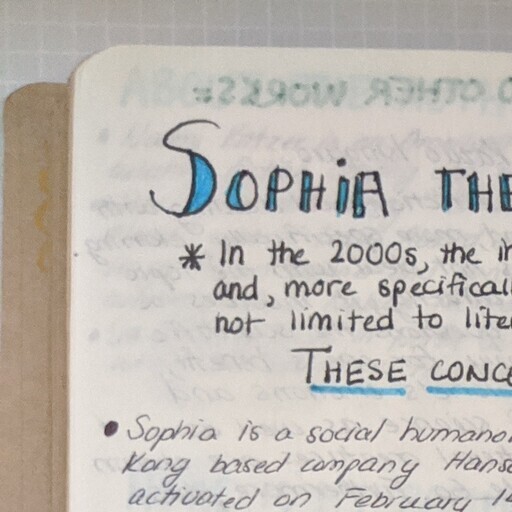 SOPHIA THE
* In the 2000s, the in
and, more specificall
not limited to lite
THESE CONC
• Sophia is a social humano
Kong based company Hans
activated on February 14